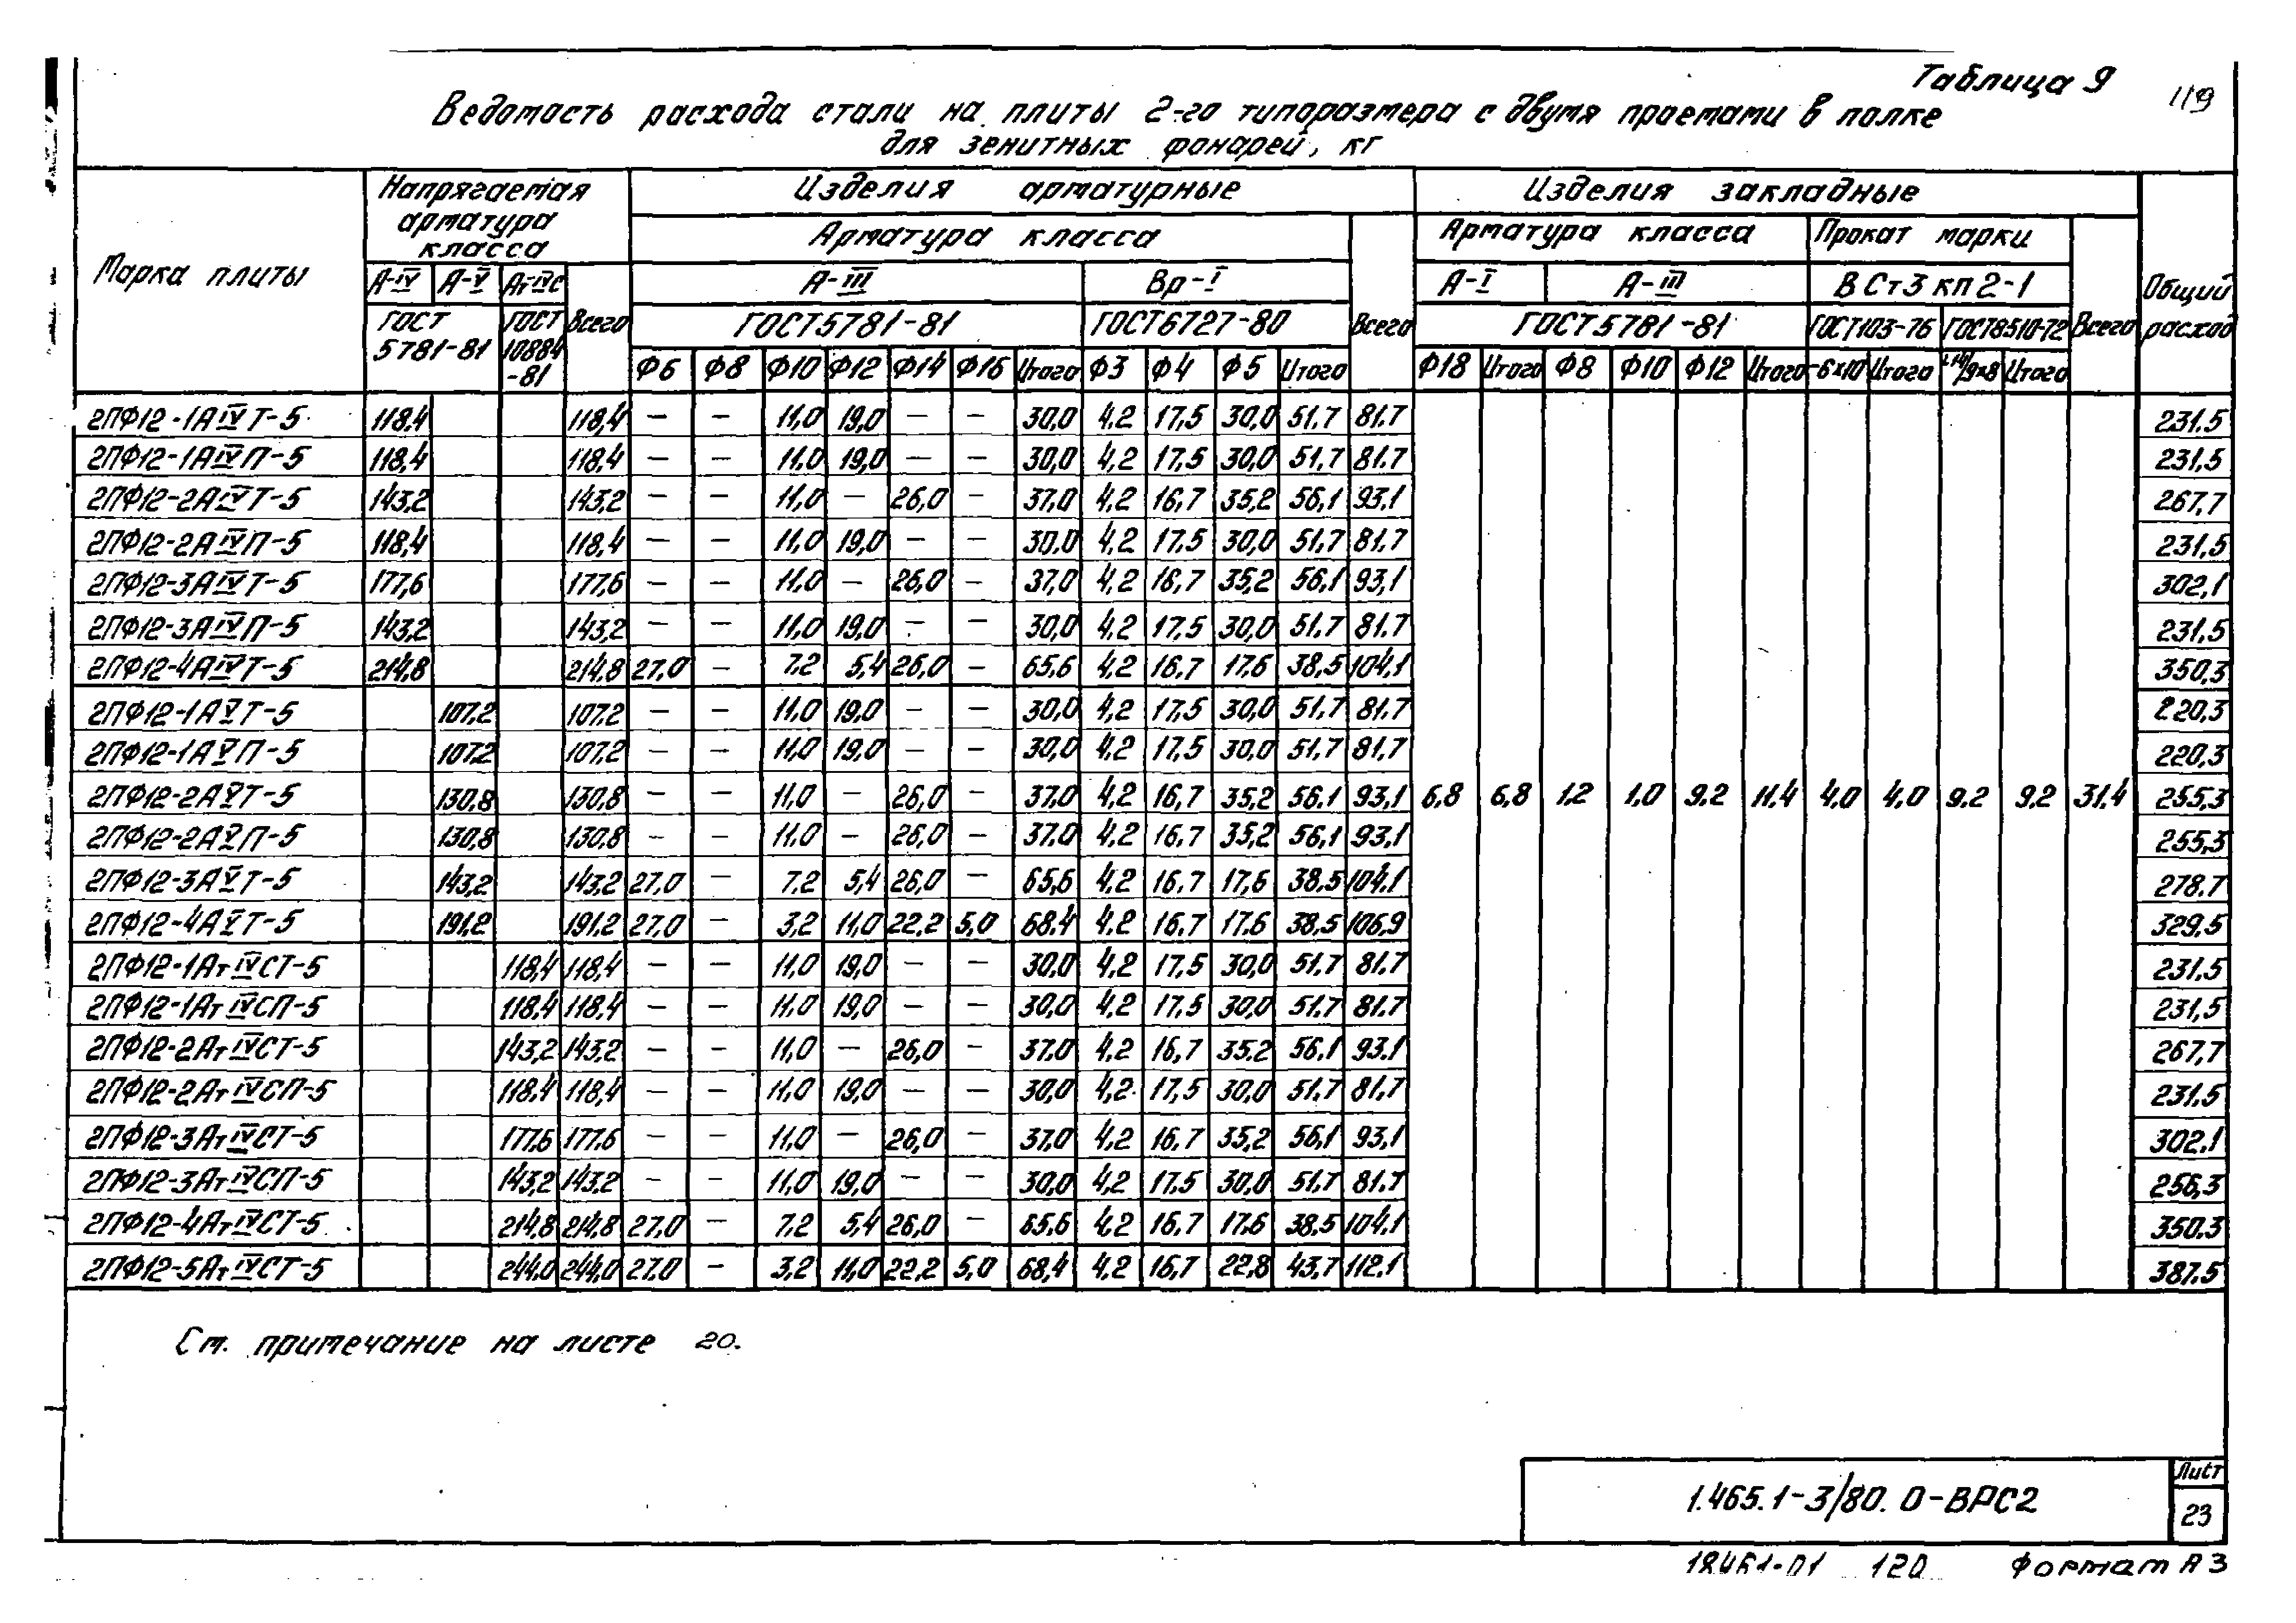 Таблица 9
119
Ведомость расхода стали на плиты 2-го типоразмера с двумя проемами в полке
для зенитных фонарей, кг
Марка плиты
Напрягаемая арматура класса
Изделия арматурные
Изделия закладные
Общий расход
Арматура класса
Всего
Арматура класса
Прокат марки
Всего
А-IV А-V Ат-IVС Всего
А-III Вр-I
А-I А-III
ВСт3кп2-1
ГОСТ 5781-81 ГОСТ 10884-81
ГОСТ5781-81 ГОСТ6727-80
ГОСТ5781-81
ГОСТ103-76 ГОСТ8510-72
Ф6 Ф8 Ф10 Ф12 Ф14 Ф16 Итого Ф3 Ф4 Ф5 Итого
Ф18 Итого Ф8 Ф10 Ф12 Итого -6х10 Итого Итого
2ПФ12-1АIVТ-5 118,4 118,4 — — 11,0 19,0 — — 30,0 4.2 17,5 30,0 51,7 81.7 231.5
2ПФ12-1АIVП-5 118,4 118,4 — — 11,0 19,0 — — 30,0 4,2 17,5 30,0 51,7 81.7 231,5
2ПФ12-2АIVТ-5 143,2 143,2 — — 11,0 — 26,0 — 37,0 4.2 16,7 35,2 56,1 93,1 267,7
2ПФ12-2АIVП-5 118,4 118,4 — — 11,0 19,0 — — 30,0 4,2 17,5 30,0 51,7 81.7 231,5
2ПФ12-3АIVТ-5 177,6 177,6 — — 11,0 — 26,0 — 37,0 4,2 16,7 35,2 56,1 93,1 302,1
2ПФ12-3АIVП-5 143,2 143,2 — — 11,0 19,0 — — 30,0 4,2 17,5 30,0 51,7 81.7 231,5
2ПФ12-4АIVТ-5 214,8 214,8 27,0 — 7.2 5,4 26,0 — 65,6 4,2 16,7 17,6 38,5 104,1 350,3
2ПФ12-1АVТ-5 107,2 107,2 — — 11,0 19,0 — — 30,0 4,2 17,5 30,0 51,7 81,7 220,3
2ПФ12-1АVП-5 107,2 107,2 — — 11,0 19,0 — — 30,0 4.2 17,5 30,0 51,7 81,7 220,3
2ПФ12-2АVТ-5 130,8 130,8 — — 11,0 — 26,0 — 37,0 4,2 16,7 35,2 56,1 93,1 6,8 6,8 1,2 1,0 9.2 11.4 4,0 4,0 9.2 9.2 31,4 255,3
2ПФ12-2АVП-5 130,8 130,8 — — 11,0 — 26,0 — 37,0 4.2 16,7 35,2 56,1 93,1 255,3
2ПФ12-3АVТ-5 143,2 143,2 27,0 — 7.2 5,4 26,0 — 65,6 4,2 16.7 17,6 38,5 104.1 278.7
2ПФ12-4АVТ-5 191,2 191,2 27,0 — 3,2 11,0 22,2 5,0 68.4 4.2 16,7 17.6 38,5 106,9 329,5
2ПФ12-1АтIVСТ-5 118,4 118,4 — — 11,0 19,0 — — 30,0 4,2 17,5 30,0 51,7 81,7 231,5
2ПФ12-1АтIVСП-5 118,4 118,4 — — 11,0 19,0 — — 30,0 4,2 17,5 30,0 51.7 81.7 231,5
2ПФ12-2АтIVСТ-5 143,2 143,2 — — 11,0 — 26,0 — 37,0 4,2 16,7 35,2 56,1 93,1 267,7
2ПФ12-2АтIVСП-5 118,4 118,4 — — 11,0 19,0 — — 30,0 4,2 17,5 30,0 51,7 81,7 231.5
2ПФ12-3АтIVСТ-5 177,6 177,6 — — 11,0 — 26,0 — 37,0 4,2 16,7 35,2 56,1 93,1 302,1
2ПФ12-3АтIVСП-5 143,2 143,2 — — 11,0 19,0 — — 30,0 4,2 17,5 30,0 51,7 81,7 256,3
2ПФ12-4АтIVСТ-5 214,8 214,8 27,0 — 7.2 5,4 26,0 — 65,6 4,2 16,7 17,6 38,5 104,1 350.3
2ПФ12-5АтIVСТ-5 244,0 244,0 27,0 — 3,2 11,0 22,2 5,0 68,4 4,2 16,7 22,8 43,7 112,1 387.5
См. примечание на листе 20.
1.465.1-3/80.0-ВРС2
Лист
23
18461-01 120 Формат А3